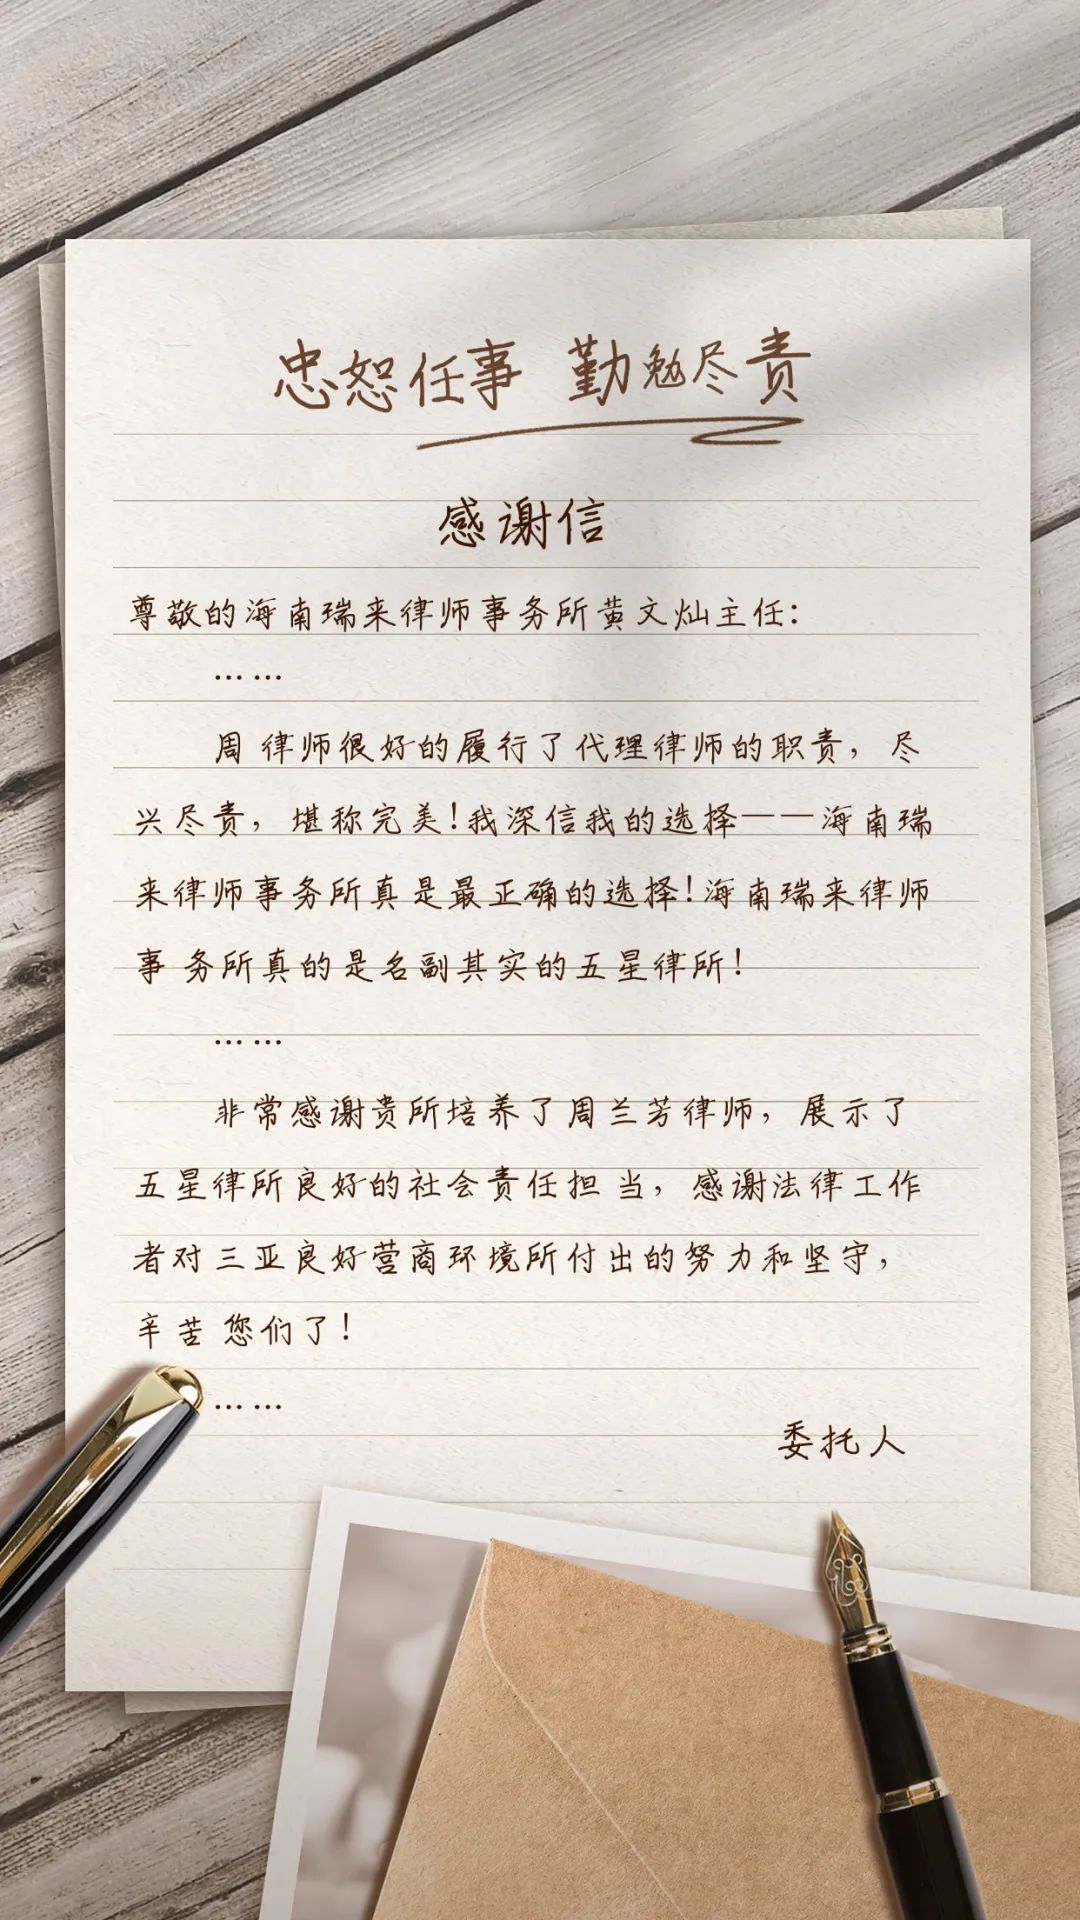 忠恕任事 勤勉尽责
感谢信
尊敬的海南瑞来律师事务所黄文灿主任：
……
周律师很好的履行了代理律师的职责，尽
兴尽责，堪称完美！我深信我的选择——海南瑞
来律师事务所真是最正确的选择！海南瑞来律师
事务所真的是名副其实的五星律所！
……
非常感谢贵所培养了周兰芳律师，展示了
五星律所良好的社会责任担当，感谢法律工作
者对三亚良好营商环境所付出的努力和坚守，
辛苦您们了！
……
委托人